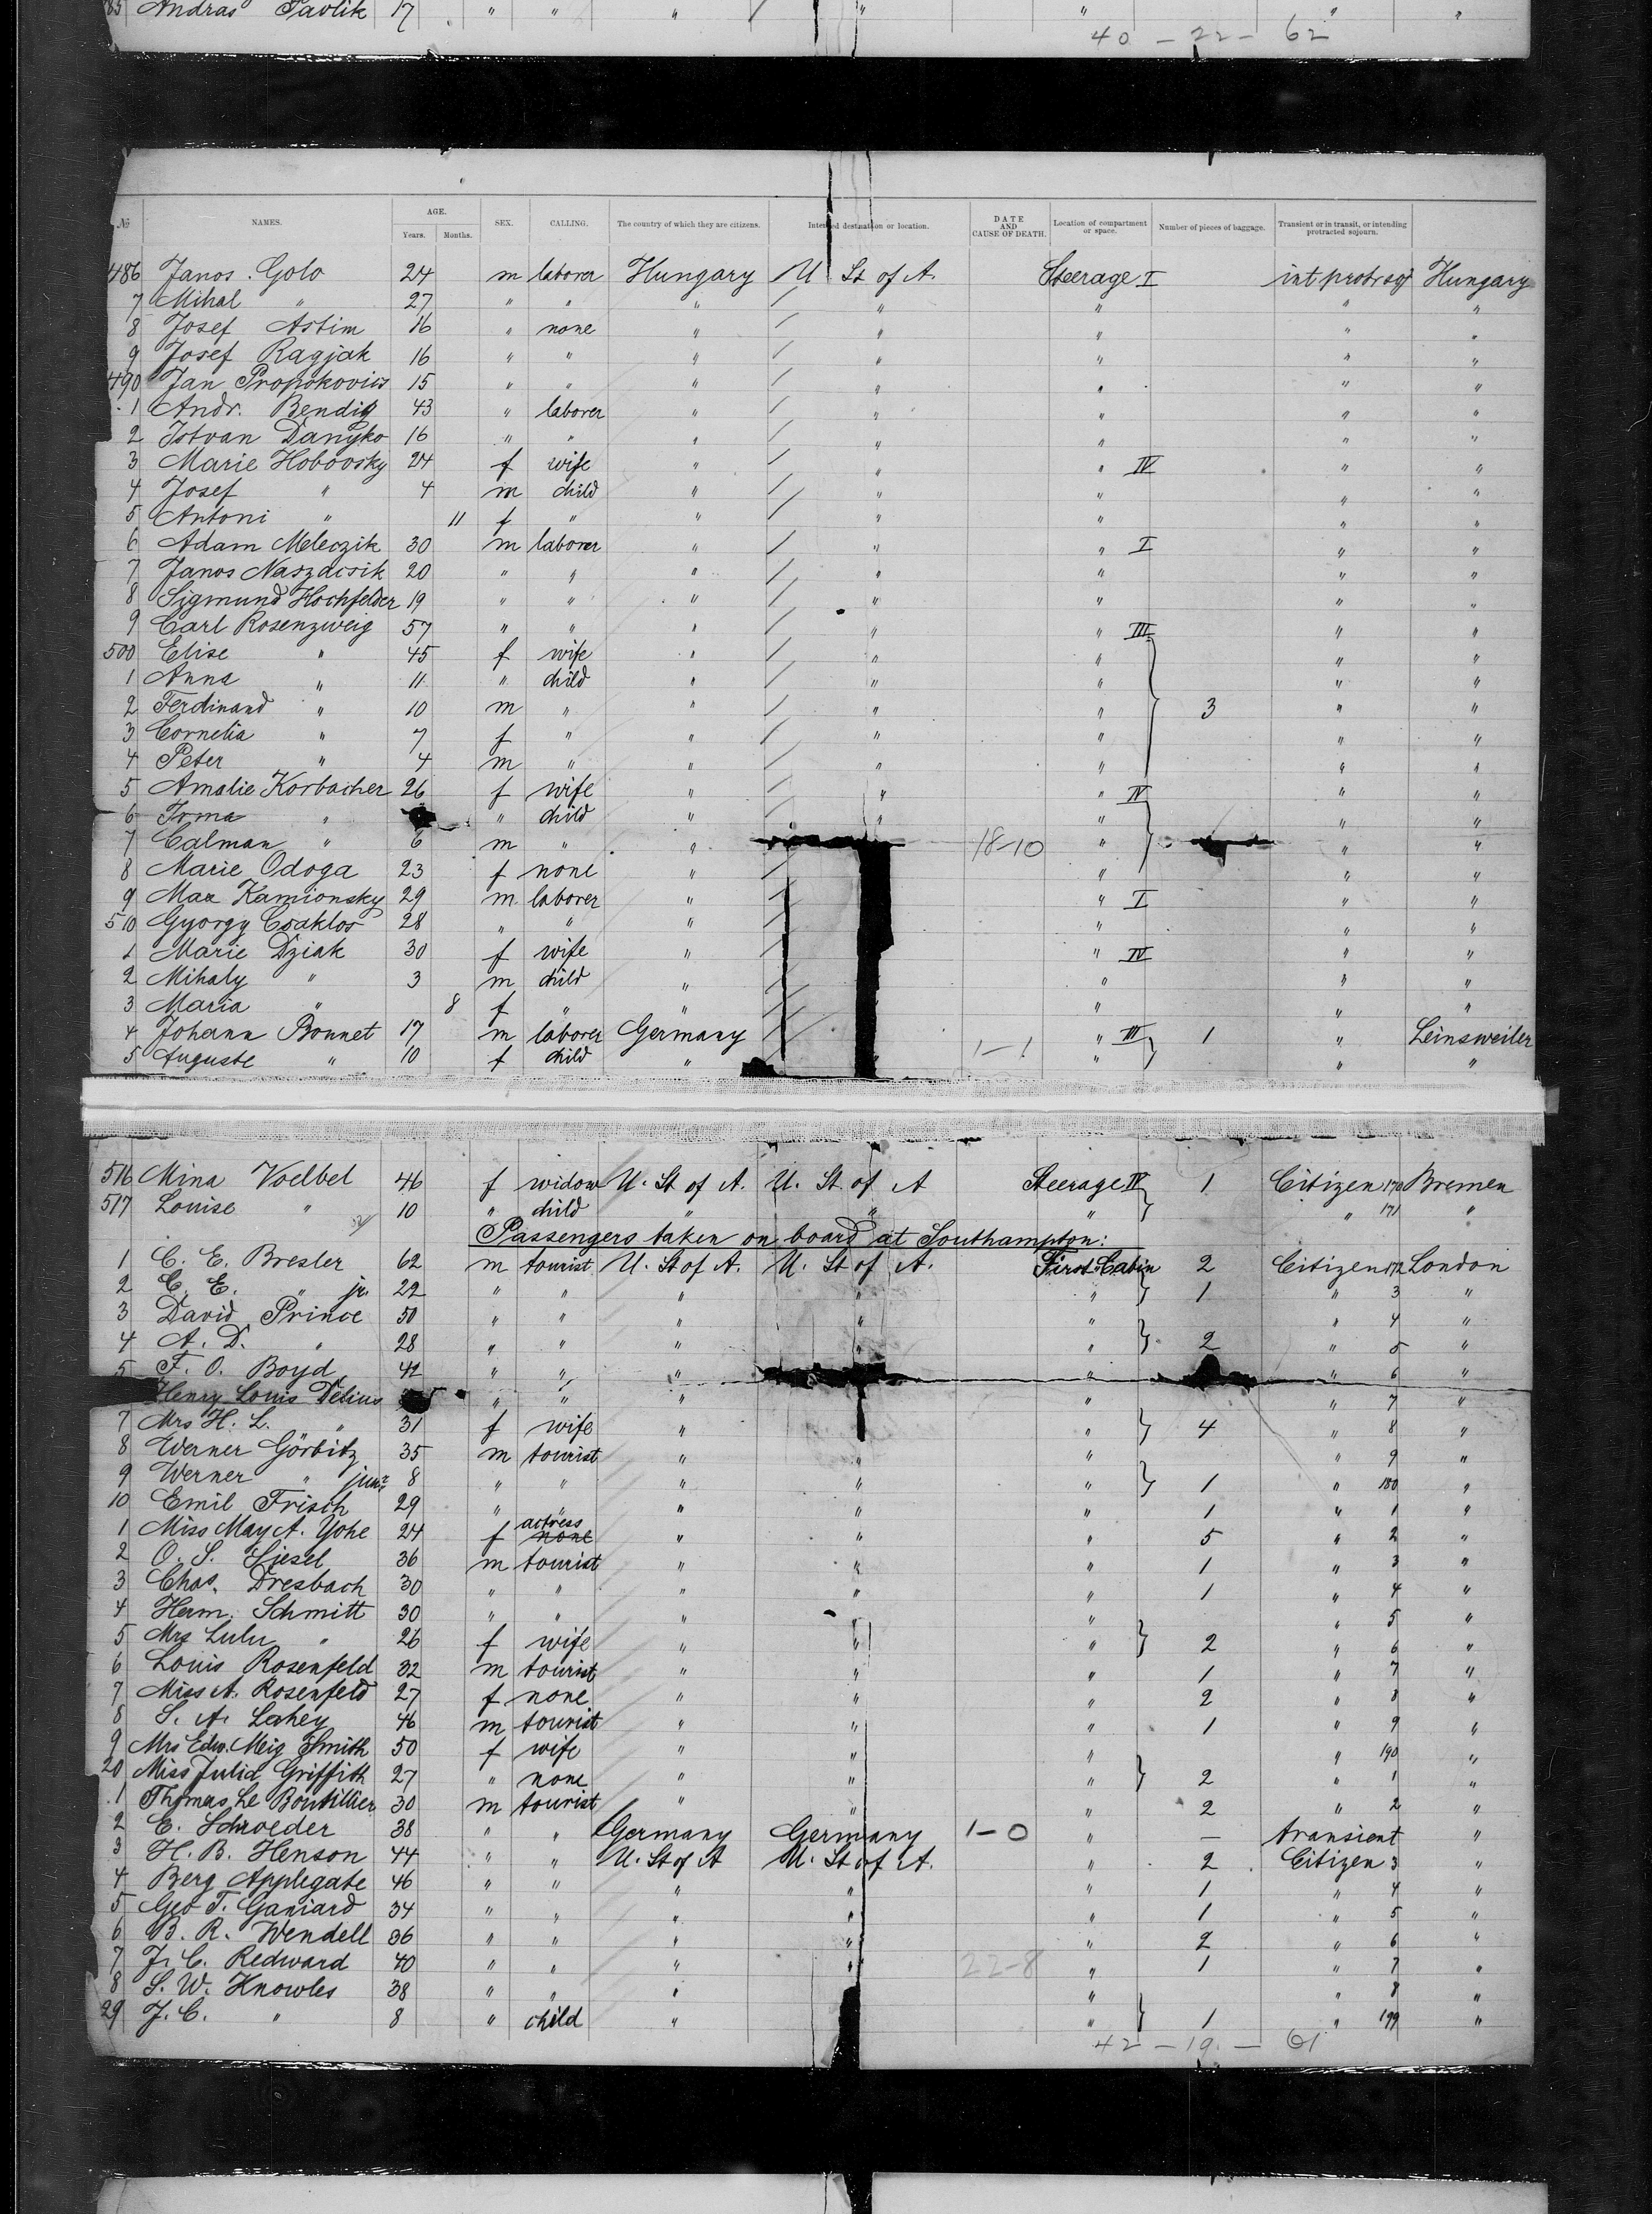 85 Andras Pavlik 17 " " " " " " "
40 - 22 - 62
№ NAMES. AGE. Years. Months. SEX. CALLING. The country of which they are citizens. Intended destination or location. DATE AND CAUSE OF DEATH. Location of compartment or space. Number of pieces of baggage. Transient or in transit, or intending protracted sojourn.
486 Janos Golo 24 m laborer Hungary U. St of A. Steerage I int. protr. soj Hungary
7 Mihal " 27 " " " " " " "
8 Josef Astim 16 " none " " " " "
9 Josef Ragjak 16 " " " " " " "
490 Jan Propokovics 15 " " " " " " "
1 Andr. Bendig 43 " laborer " " " " "
2 Istvan Danyko 16 " " " " " " "
3 Marie Hobovsky 24 f wife " " " IV " "
4 Josef " 4 m child " " " " "
5 Antoni " 11 f " " " " " "
6 Adam Meleczik 30 m laborer " " " I " "
7 Janos Naszdcsik 20 " " " " " " "
8 Sigmund Hochfelder 19 " " " " " " "
9 Carl Rosenzweig 57 " " " " " III " "
500 Elise " 45 f wife " " " " "
1 Anna " 11 " child " " " " "
2 Ferdinand " 10 m " " " " 3 " "
3 Cornelia " 7 f " " " " " "
4 Peter " 4 m " " " " " "
5 Amalie Korbacher 26 f wife " " " IV " "
6 Irma " " child " " " " "
7 Calman " 6 m " " 18-10 " " "
8 Marie Odoga 23 f none " " " "
9 Max Kamionsky 29 m laborer " " I " "
510 Gyorgy Csaklos 28 " " " " " "
1 Marie Dziak 30 f wife " " IV " "
2 Mihaly " 3 m child " " " "
3 Maria " 8 f " " " " "
4 Johann Bonnet 17 m laborer Germany " III 1 " Leinsweiler
5 Auguste " 10 f child " 1-1 " " "
516 Mina Voelbel 46 f widow U. St of A. U. St. of A Steerage IV 1 Citizen 170 Bremen
517 Louise " 10 " child " " " " 171 "
Passengers taken on board at Southampton:
1 C. E. Bresler 62 m tourist U. St of A. U. St of A. First Cabin 2 Citizen 172 London
2 C. E. " jr. 22 " " " " " 1 " 3 "
3 David Prince 50 " " " " " " 4 "
4 A. D. " 28 " " " " " 2 " 5 "
5 F. O. Boyd 42 " " " " " 6 "
Henry Louis Delius " " " " " 7 "
7 Mrs H. L. " 31 f wife " " 4 " 8 "
8 Werner Görbitz 35 m tourist " " " " 9 "
9 Werner " junr. 8 " " " " " 1 " 180 "
10 Emil Frisch 29 " " " " " 1 " 1 "
1 Miss May A. Yohe 24 f none actress " " " 5 " 2 "
2 O. S. Siesel 36 m tourist " " " 1 " 3 "
3 Chas. Dresbach 30 " " " " " 1 " 4 "
4 Herm. Schmitt 30 " " " " " " 5 "
5 Mrs Lulu " 26 f wife " " " 2 " 6 "
6 Louis Rosenfeld 32 m tourist " " " 1 " 7 "
7 Miss A. Rosenfeld 27 f none " " " 2 " 8 "
8 S. A. Lahey 46 m tourist " " " 1 " 9 "
9 Mrs Edw. Meig Smith 50 f wife " " " " 190 "
20 Miss Julia Griffith 27 " none " " " 2 " 1 "
1 Thomas Le Boutillier 30 m tourist " " " 2 " 2 "
2 E. Schroeder 38 " " Germany Germany 1-0 " — transient "
3 H. B. Henson 44 " " U. St of A U. St of A. " 2 Citizen 3 "
4 Berg Applegate 46 " " " " " 1 " 4 "
5 Geo T. Ganiard 34 " " " " " 1 " 5 "
6 B. R. Wendell 36 " " " " " 2 " 6 "
7 J. C. Redward 40 " " " " 22-8 " 1 " 7 "
8 S. W. Knowles 38 " " " " " 8 "
29 J. C. " 8 " child " " 1 " 199 "
42 - 19 - 61